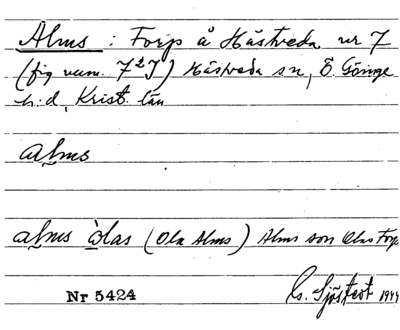 Alms : Torp å Hästveda nr 7
(fig num. 7²J) Hästveda sn, Ö. Göinge
h:d, Krist. län
alms
alms òlas (Ola Alms) Alms son
Nr 5424
G. Sjöstedt 1944